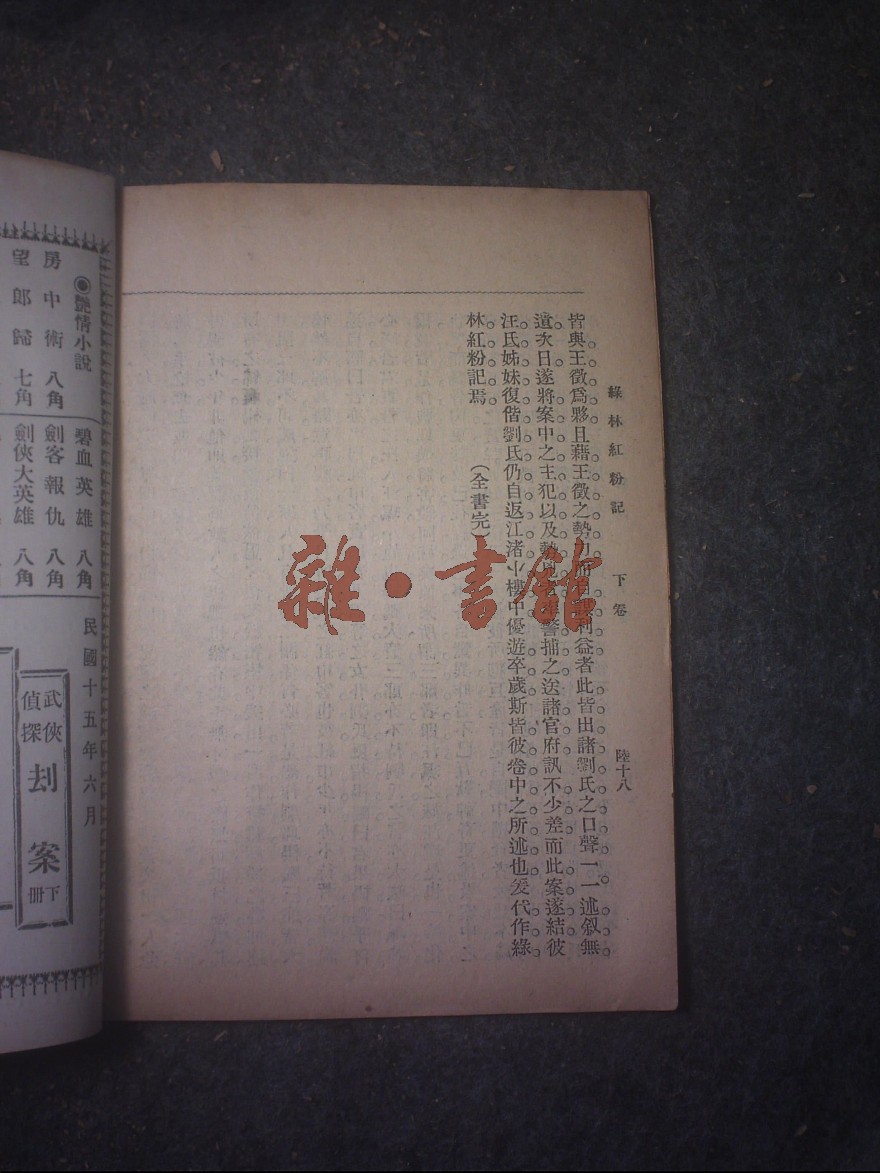 綠林紅粉記 下卷 陸十八
皆與王徵爲夥且藉王徵之勢力而自謀利益者此皆出諸劉氏之口聲一一述叙無
遺次日遂將案中之主犯以及
警捕之送諸官府訊不少差而此案遂結彼
汪氏姊妹復偕劉氏仍自返江渚小樓中優遊卒歲斯皆彼卷中之所述也爰代作綠
林紅粉記焉
(全書完)
雜·書館
◉艷情小說
房中術 八角
望郎歸 七角
碧血英雄 八角
劍客報仇 八角
劍俠大英雄 八角
民國十五年六月
武俠
偵探
刦案
下冊